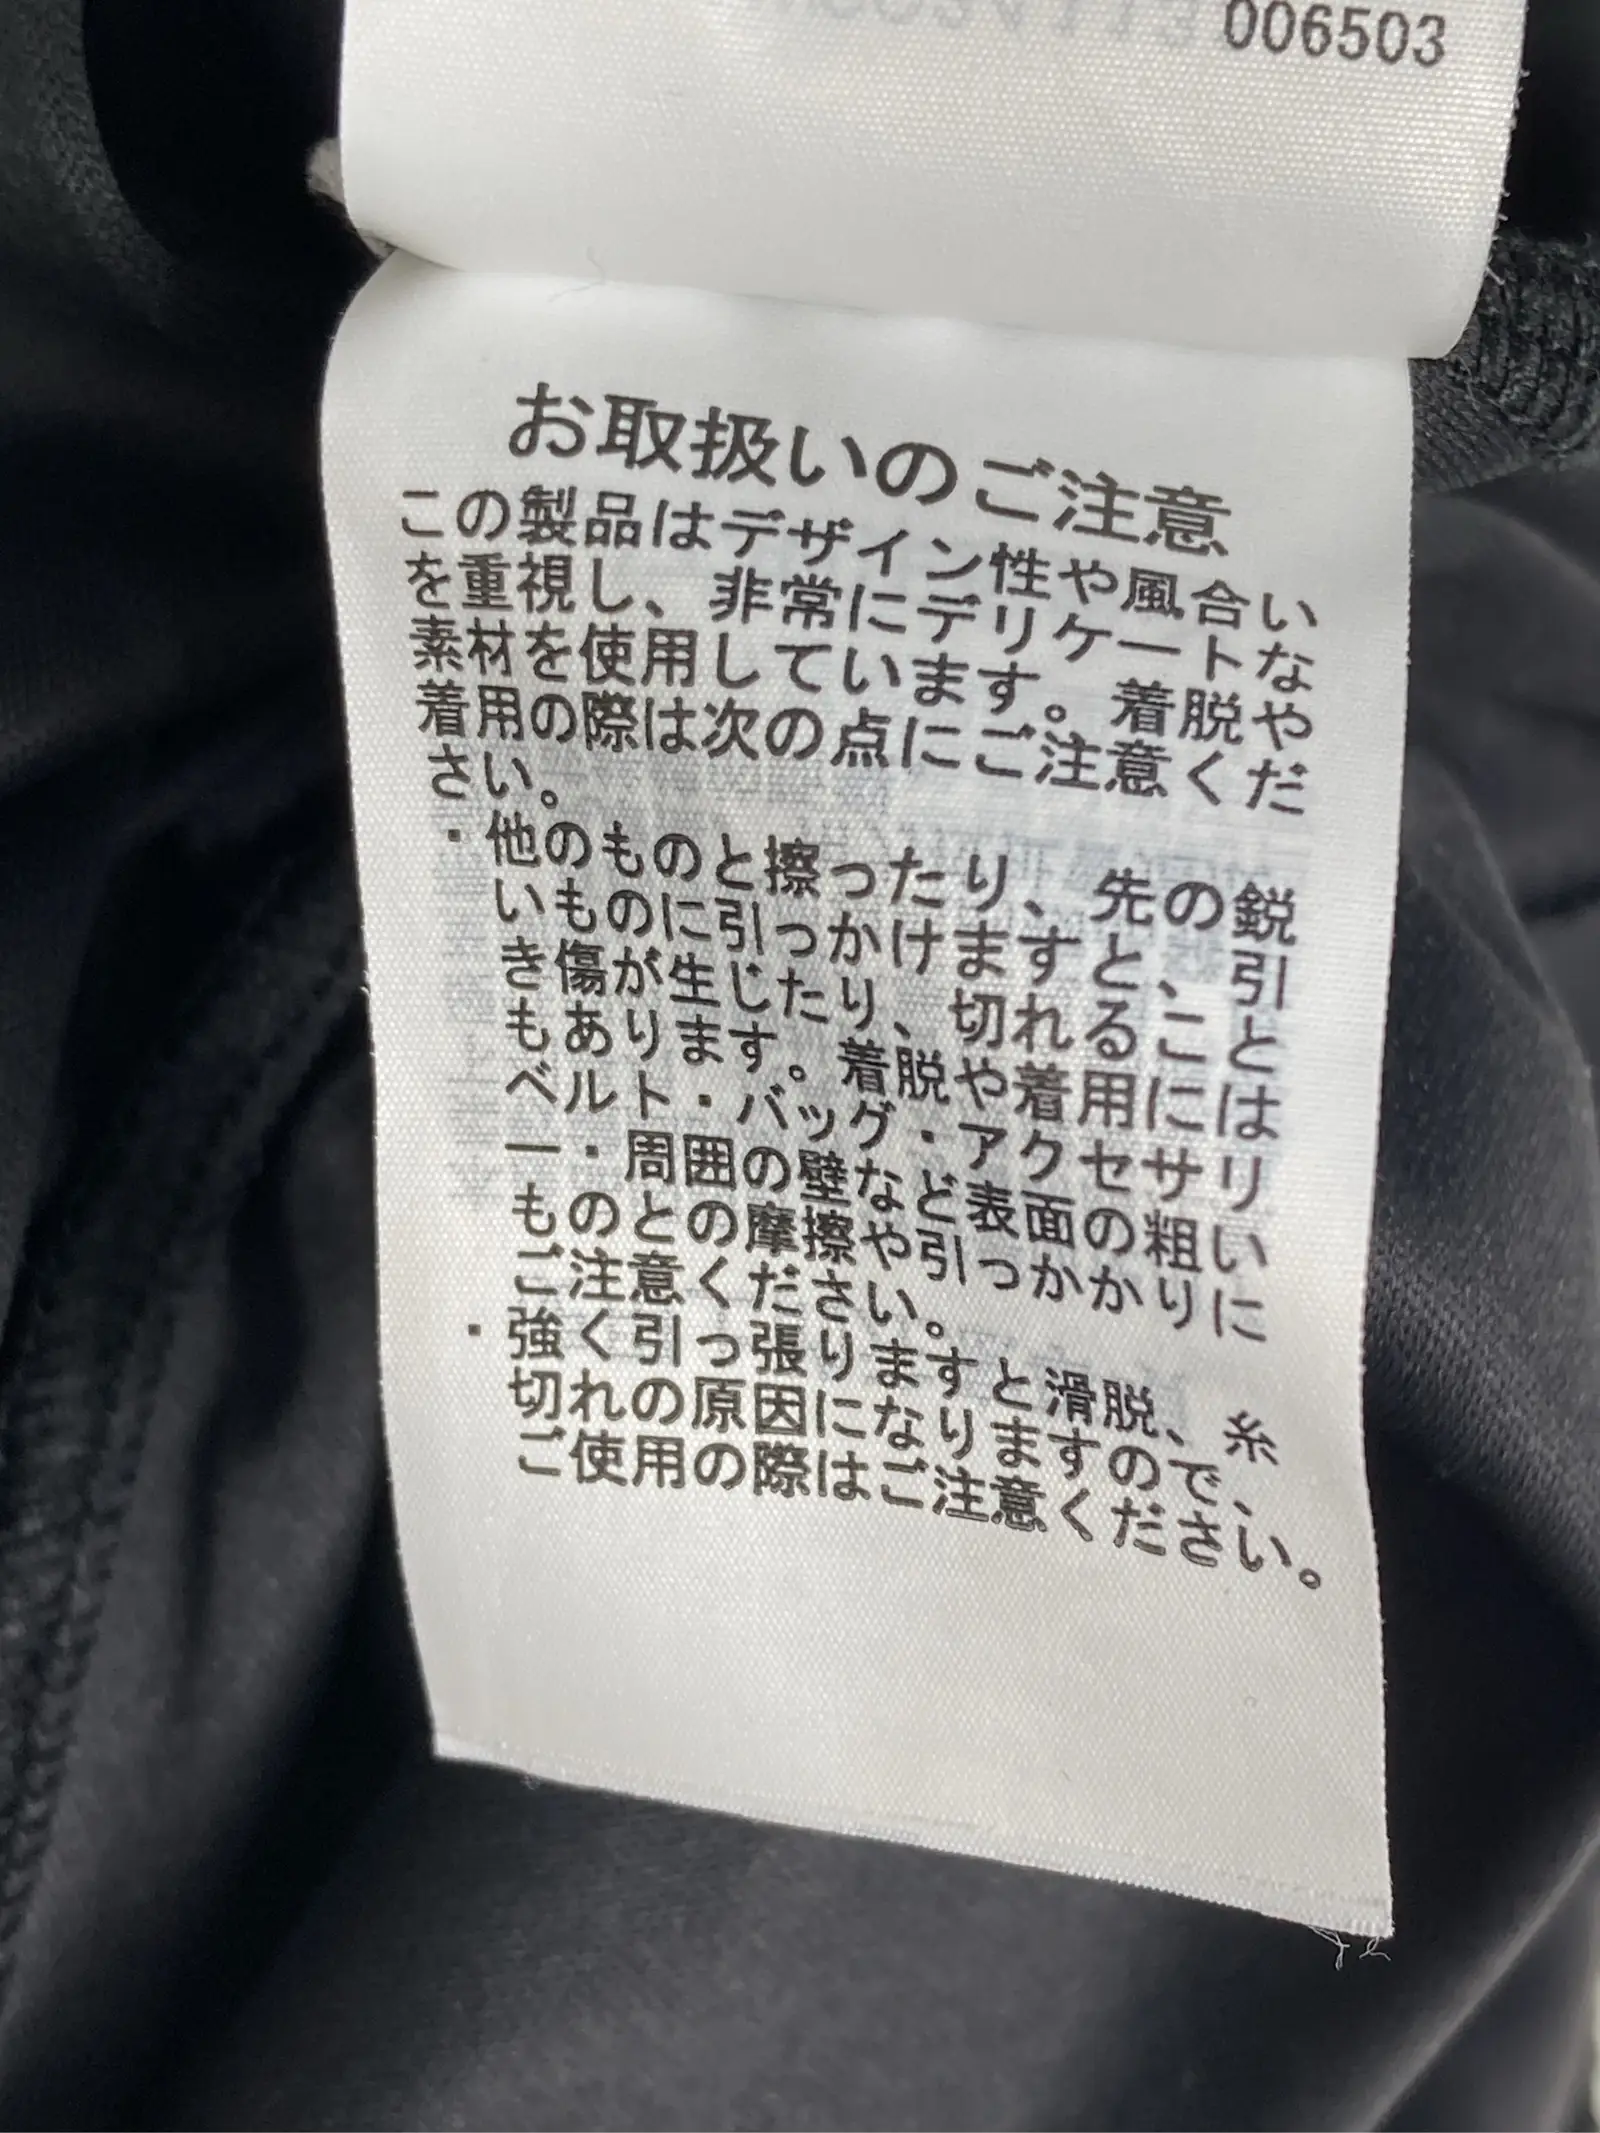 006503
お取扱いのご注意
この製品はデザイン性や風合い
を重視し、非常にデリケートな
素材を使用しています。着脱や
着用の際は次の点にご注意くだ
さい。
・他のものと擦ったり、先の鋭
いものに引っかけますと、引
き傷が生じたり、切れること
もあります。着脱や着用には
ベルト・バッグ・アクセサリ
ー・周囲の壁など表面の粗い
ものとの摩擦や引っかかりに
ご注意ください。
・強く引っ張りますと滑脱、糸
切れの原因になりますので、
ご使用の際はご注意ください。